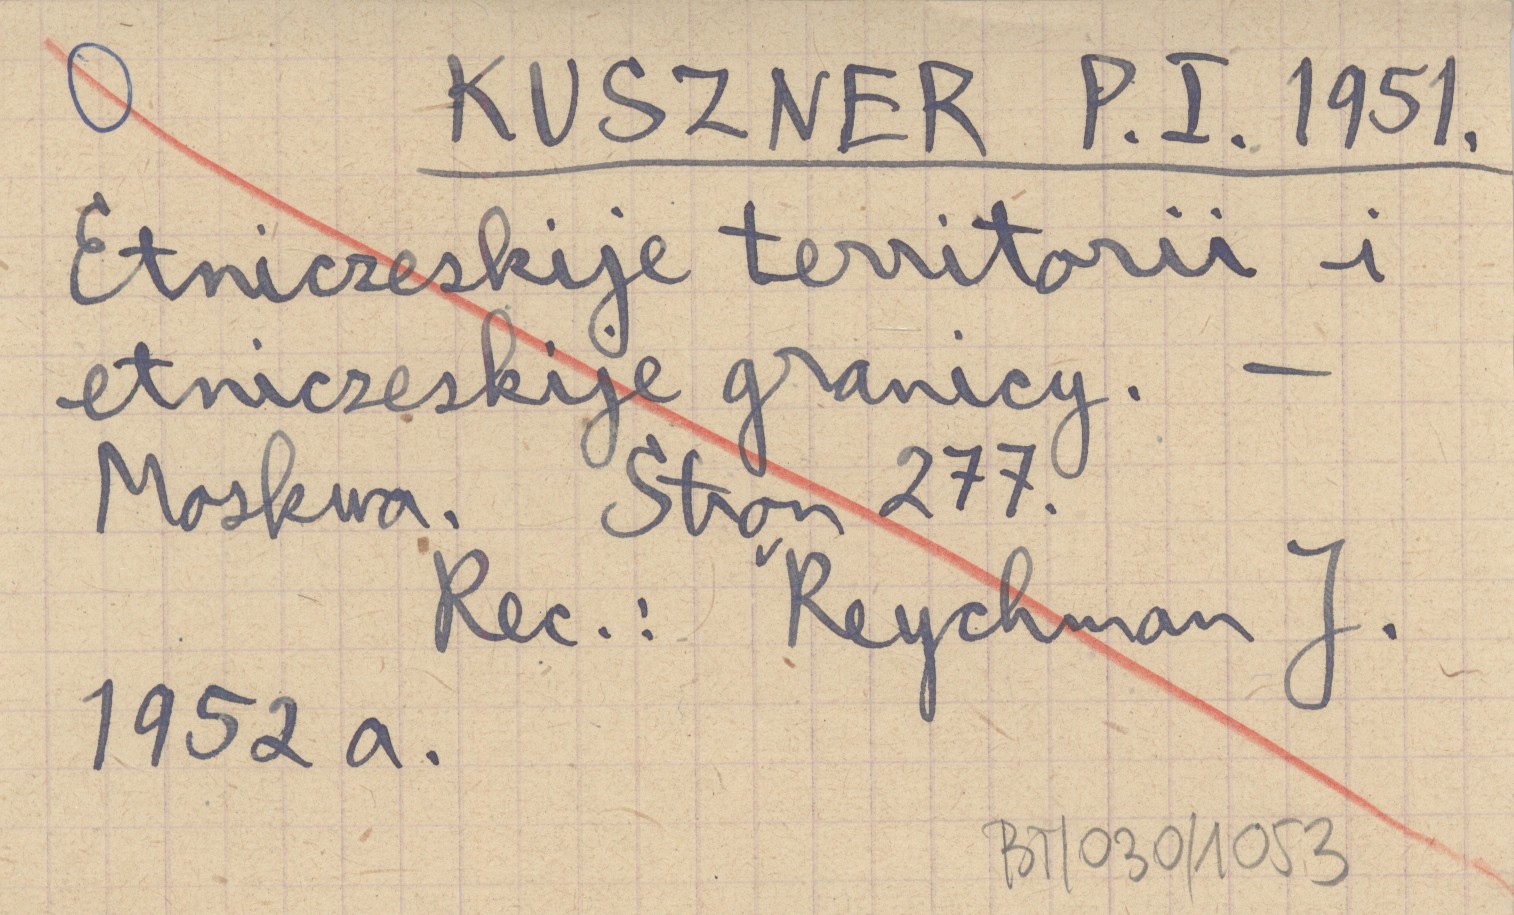 KUSZNER P.I. 1951.
Etniczeskije territorii i
etniczeskije granicy. —
Moskwa. Stron 277.
Rec.: Reychman J.
1952 a.
BT/030/1053